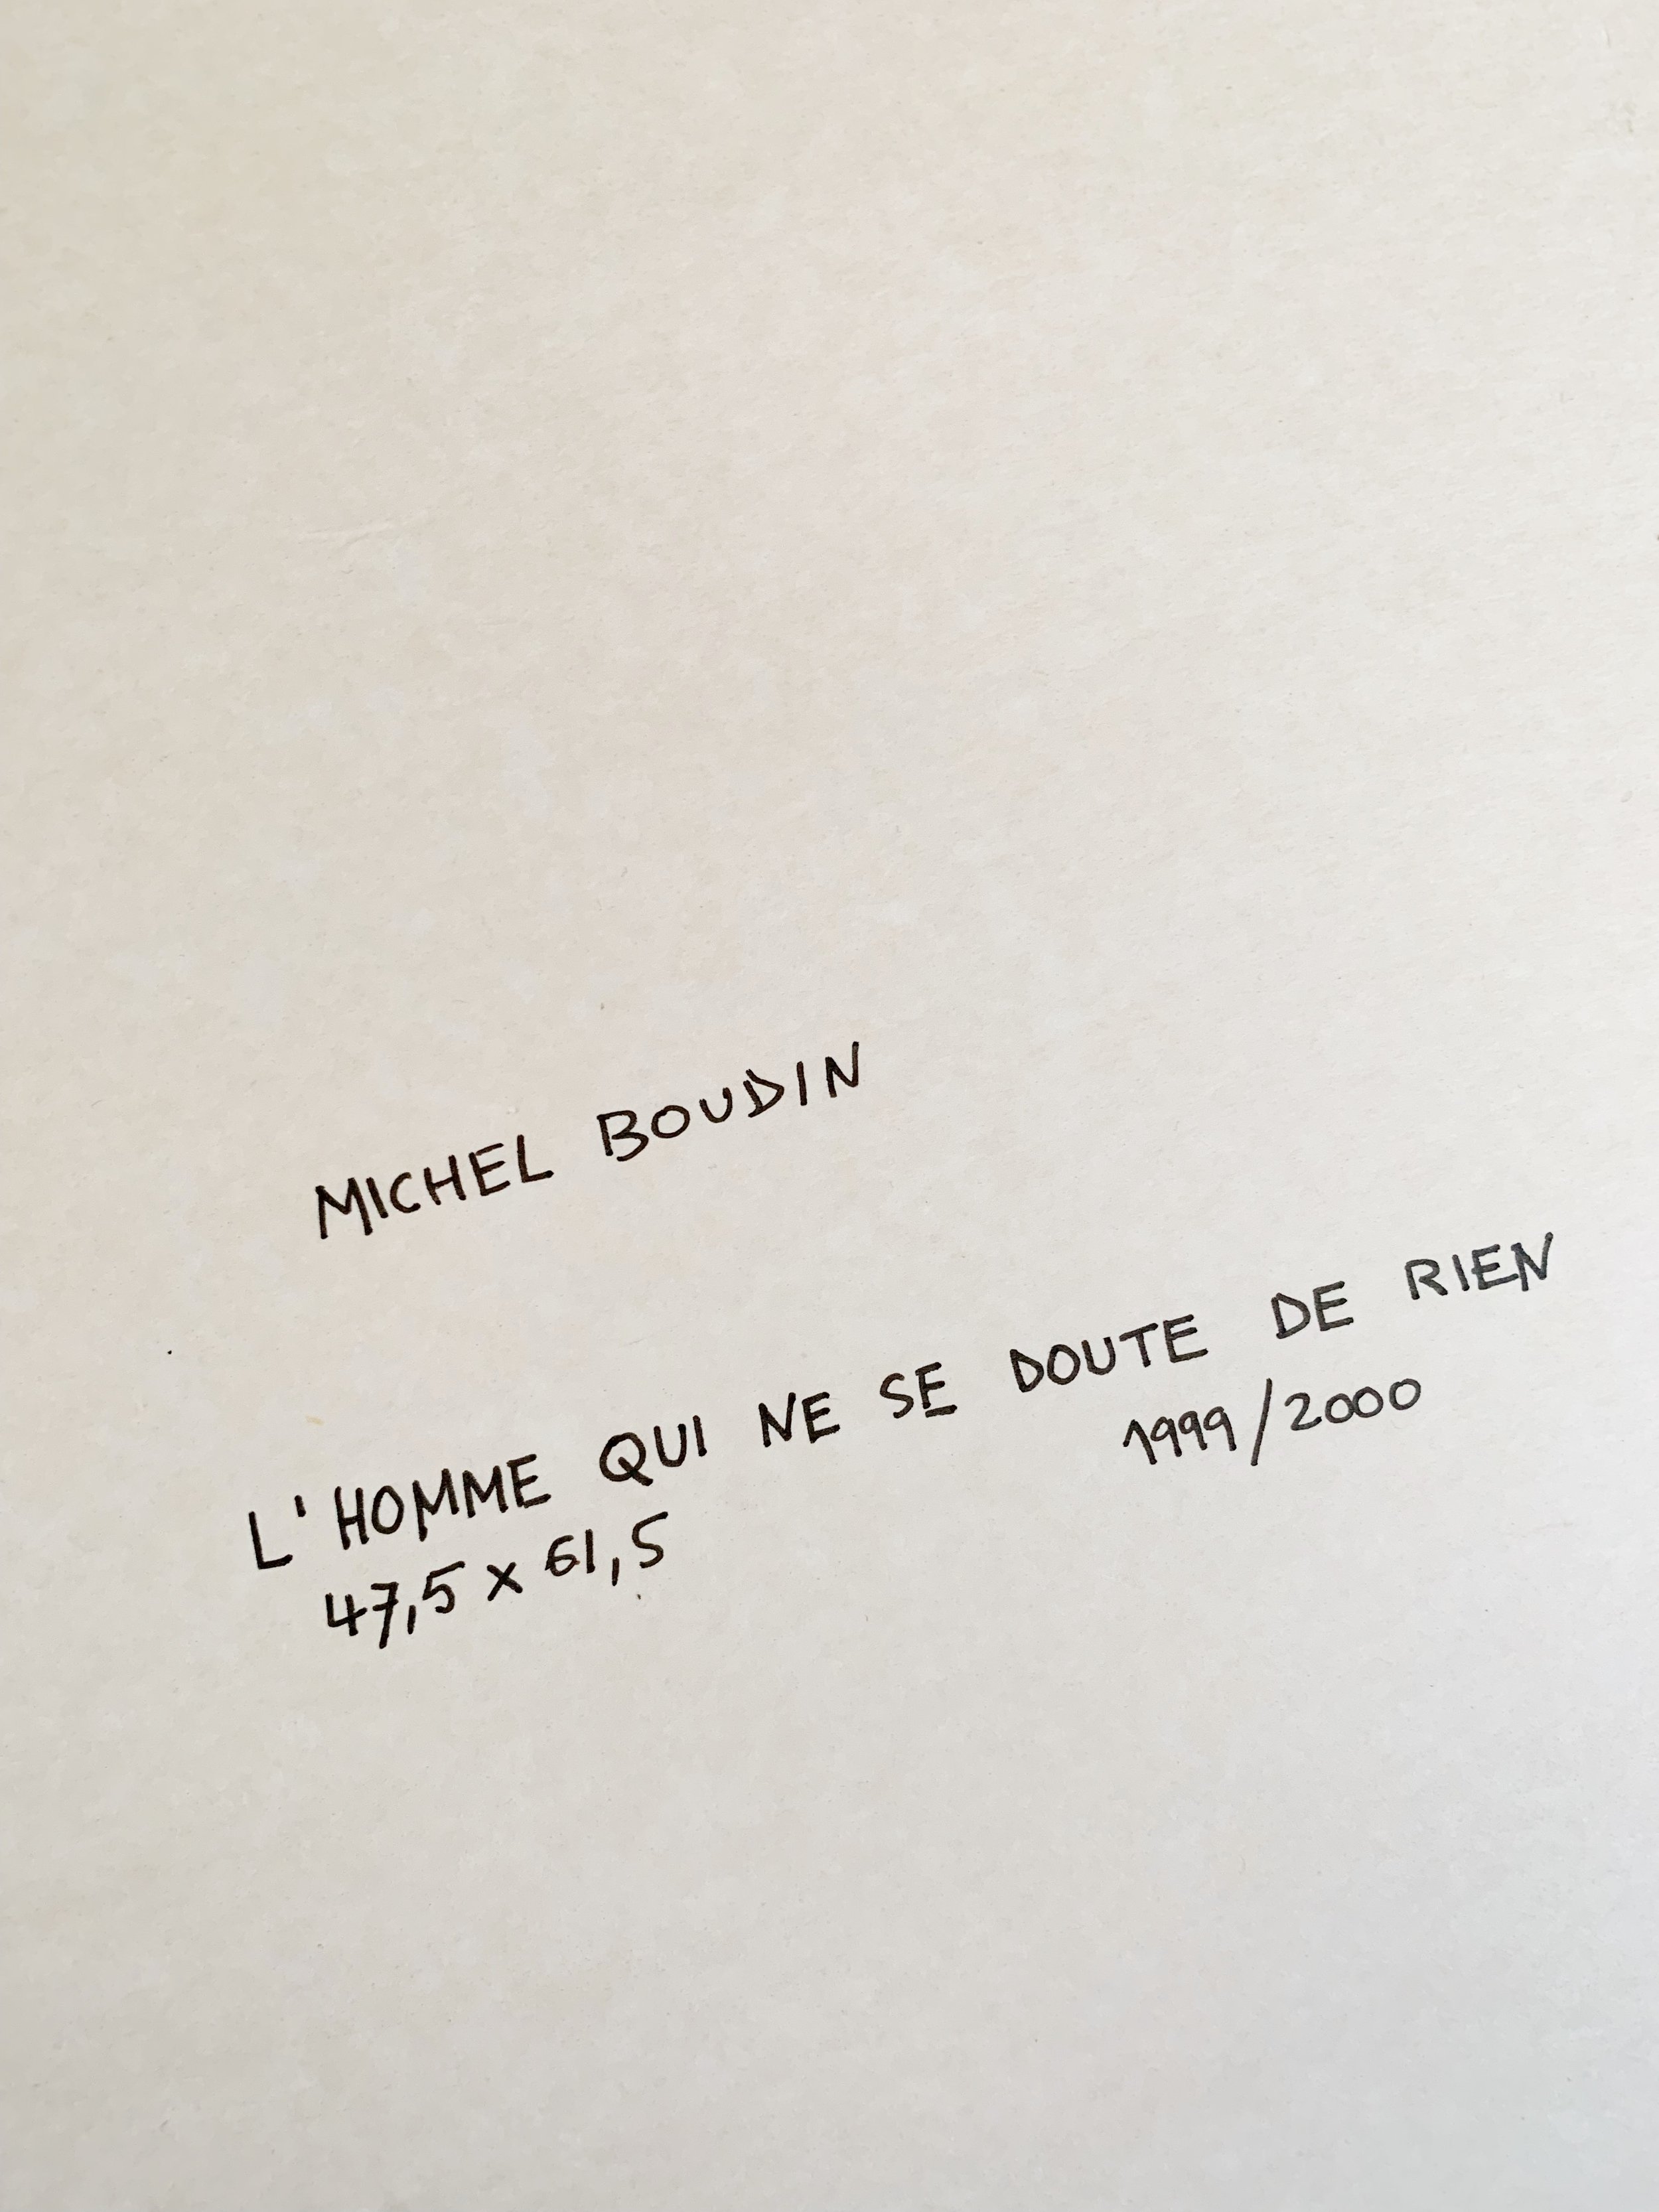 MICHEL BOUDIN
L'HOMME QUI NE SE DOUTE DE RIEN
1999/2000
47,5 x 61,5